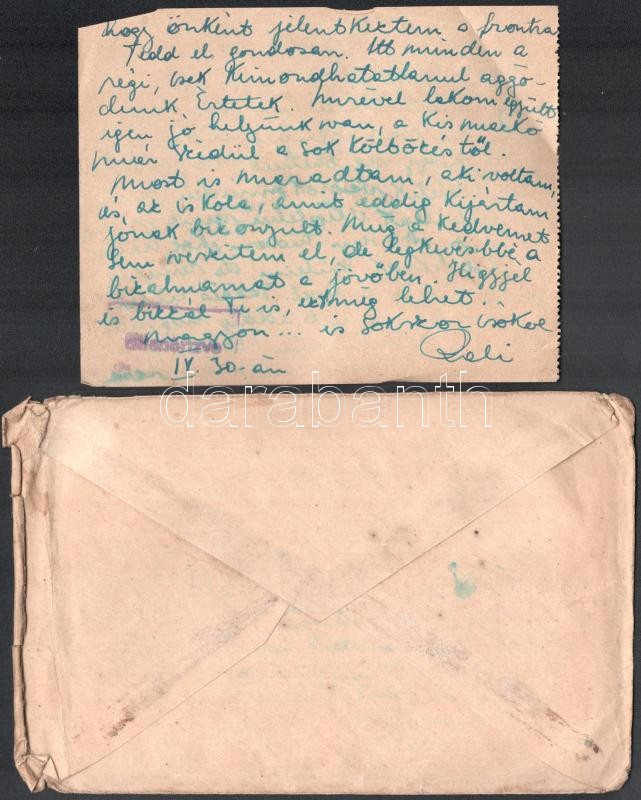 hogy önként jelentkeztem a frontra
Tedd el gondosan. Itt minden a
régi, csak kimondhatatlanul aggó-
dunk Értetek. Imrével lakom együtt
igen jó helyünk van, a kis mackó
már szédül a sok költözéstől.
Most is maradtam, aki voltam,
és az iskola, amit eddig kijártam
jónak bizonyult. Még a kedvemet
sem veszitem el, de legkevésbbé a
bizalmamat a jövőben. Higgjel
és bizzál Te is, ez még lehet..
nagyon... is sokszor csókol
Ellenőrizve
IV. 30-án
darabanth